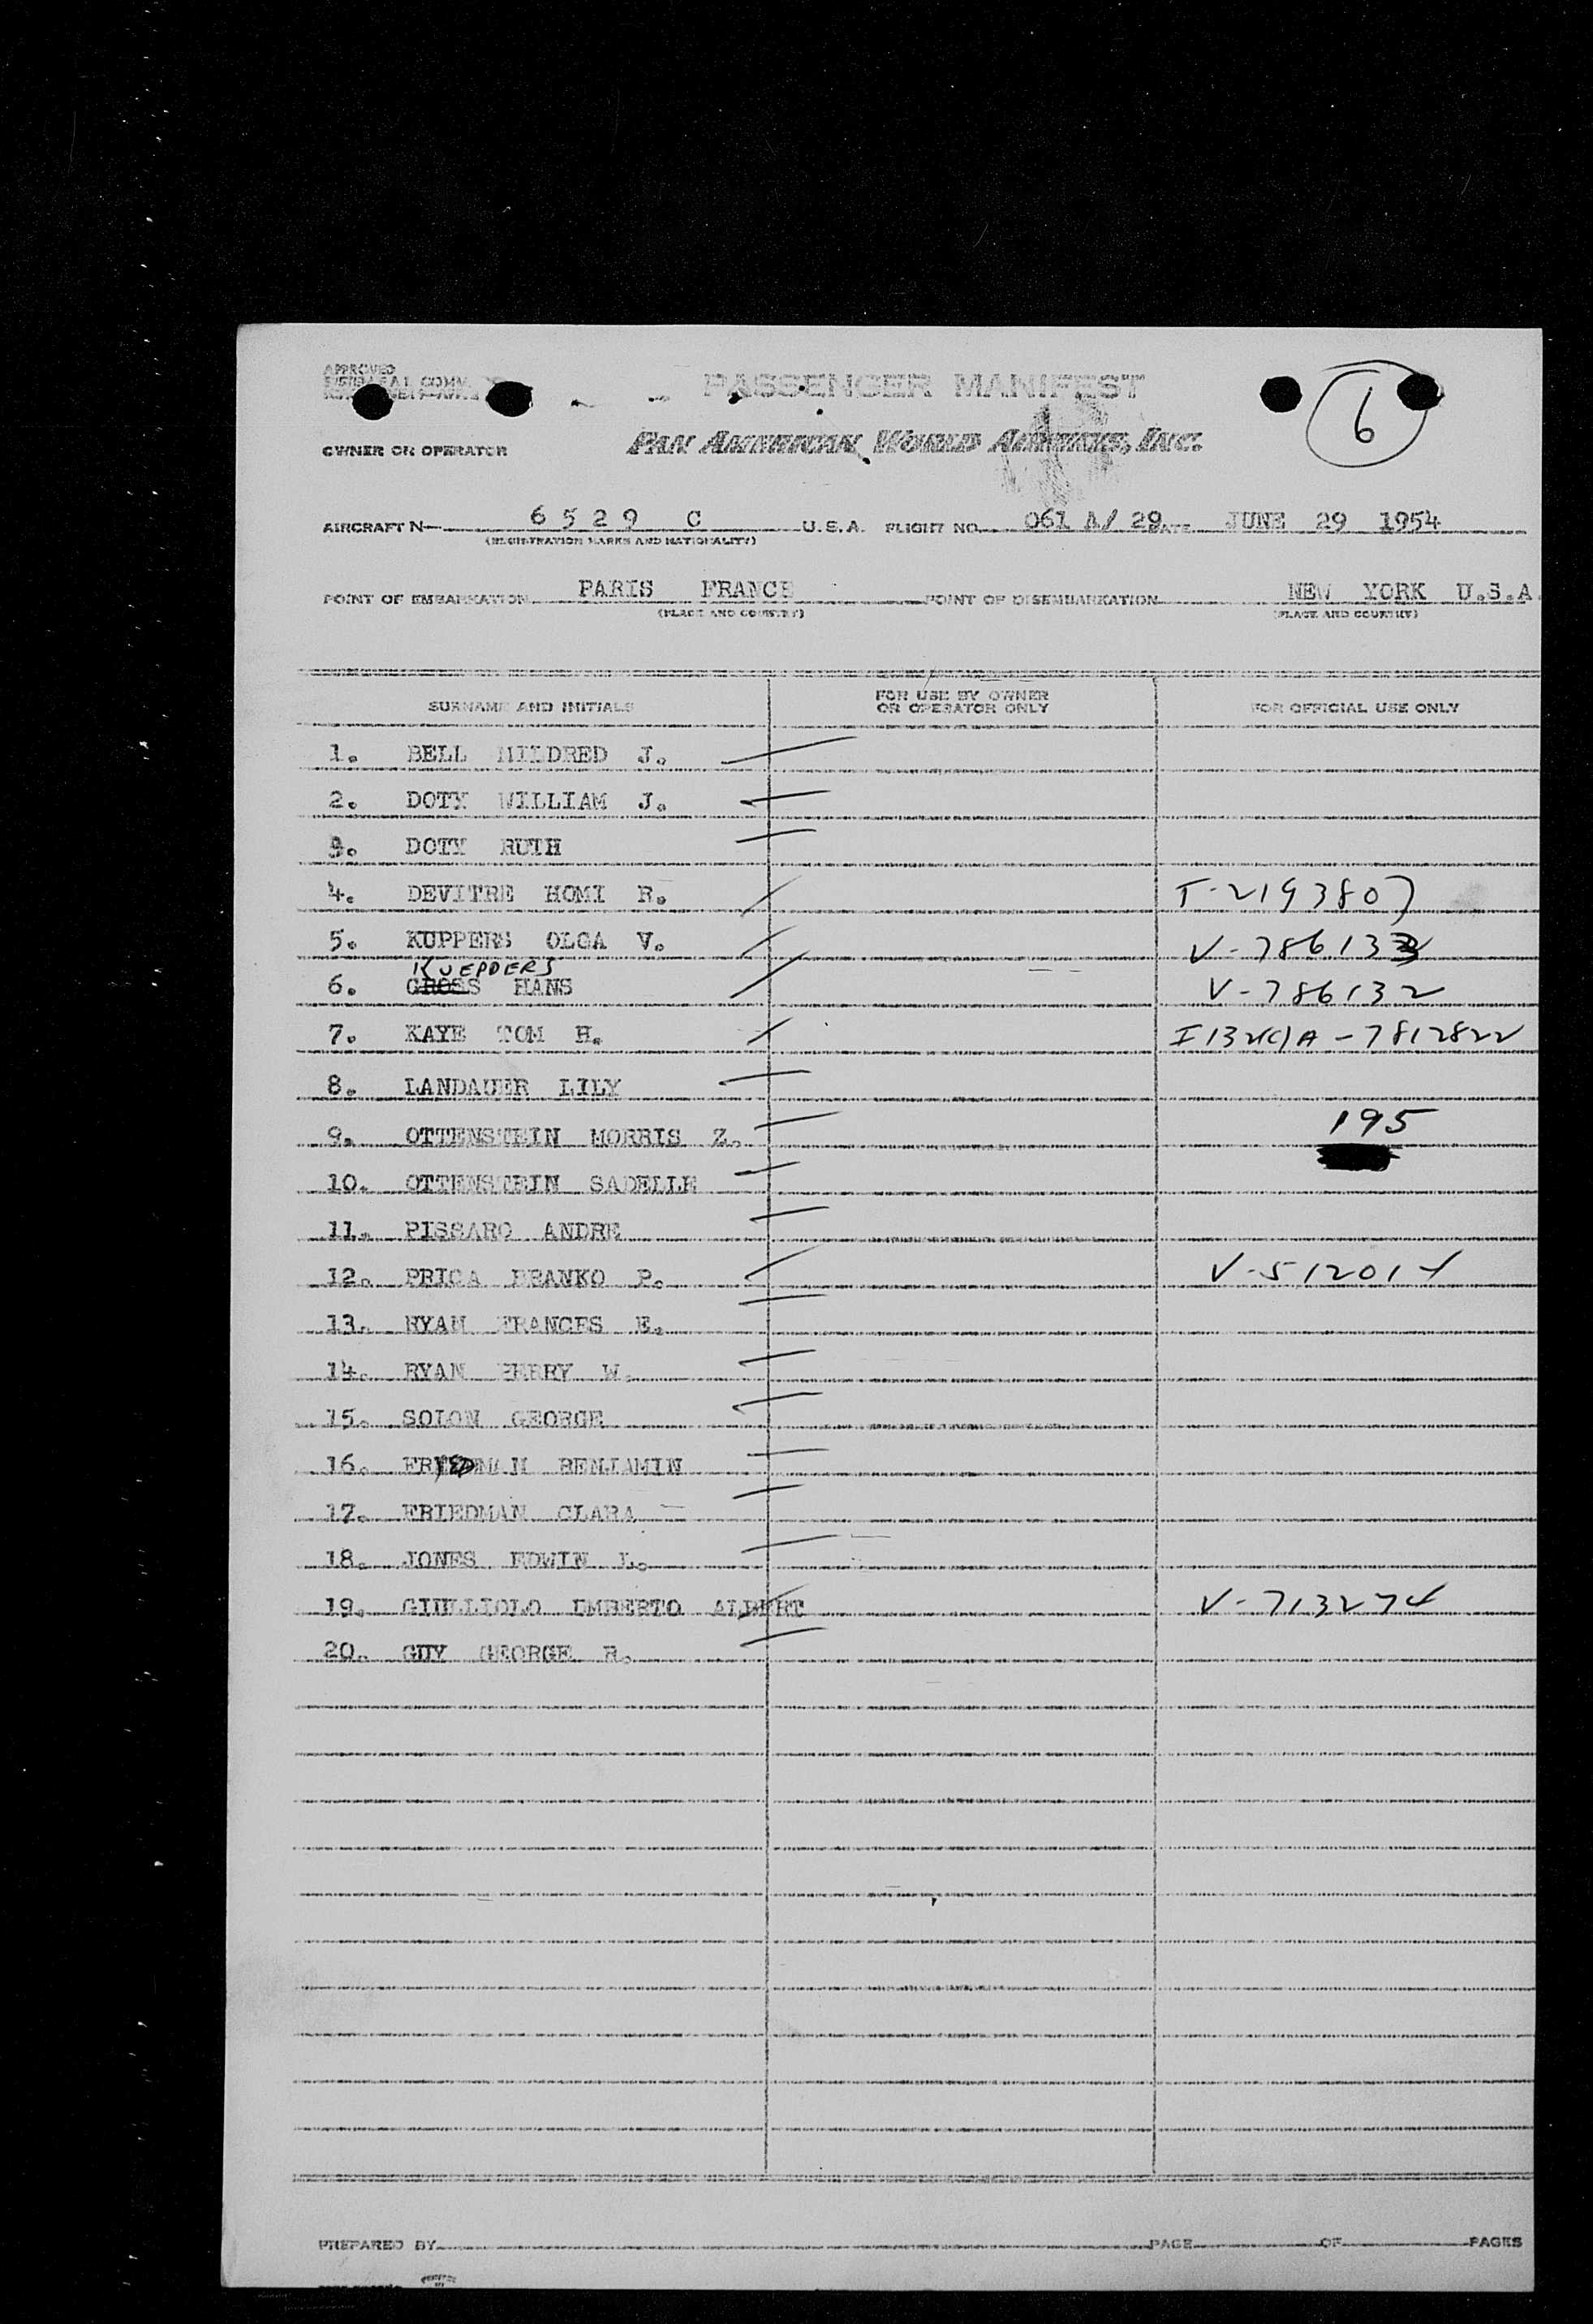 APPROVED
PASSENGER MANIFEST
6
OWNER OR OPERATOR PAN AMERICAN WORLD AIRWAYS, INC.
AIRCRAFT N— 6529 C U.S.A. FLIGHT NO. 061 A/ 29 DATE JUNE 29 1954
(REGISTRATION MARKS AND NATIONALITY)
POINT OF EMBARKATION PARIS FRANCE POINT OF DISEMBARKATION NEW YORK U.S.A.
(PLACE AND COUNTRY) (PLACE AND COUNTRY)
SURNAME AND INITIALS FOR USE BY OWNER OR OPERATOR ONLY FOR OFFICIAL USE ONLY
1. BELL MILDRED J.
2. DOTY WILLIAM J.
3. DOTY RUTH
4. DEVITRE HOMI R. T-2193807
5. KUPPERS OLGA V. V-786133
KUEPPERS
6. GROSS HANS V-786132
7. KAYE TOM H. I 132(c)A-7812822
8. LANDAUER LILY
9. OTTENSTEIN MORRIS Z. 195
10. OTTENSTEIN SADELLE
11. PISSARO ANDRE
12. PRICA BRANKO P. V-512014
13. RYAN FRANCES E.
14. RYAN PERRY W.
15. SOLON GEORGE
16. FRIEDMAN BENJAMIN
17. FRIEDMAN CLARA
18. JONES EDWIN L.
19. GIULLIOLO UMBERTO ALBERT V-713274
20. GUY GEORGE R.
PREPARED BY PAGE OF PAGES